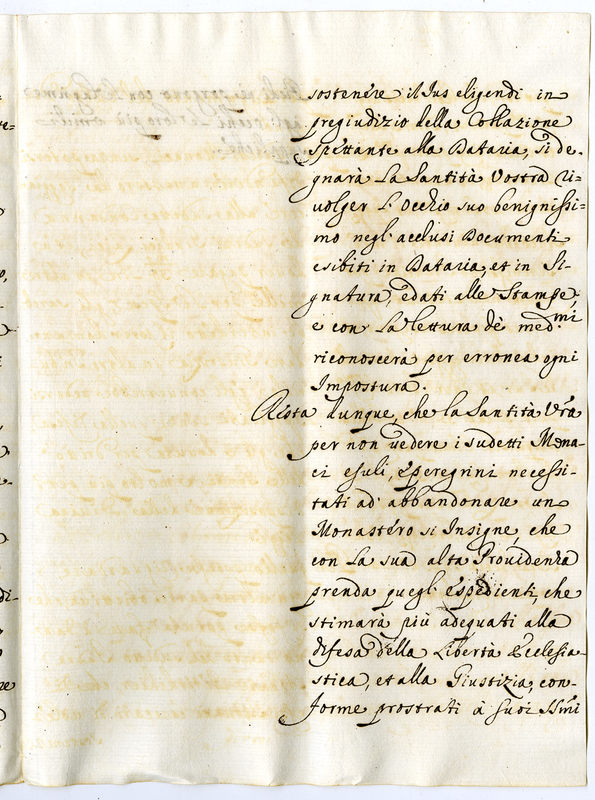 sostenere il Ius eligendi in
pregiudizio della Collazione
spettante alla Dataria, si de-
gnarà La Santità Vostra ri=
uolger L'Occhio suo benignissi=
mo negl'acclusi Documenti
esibiti in Dataria, et in Si-
gnatura, e dati alle Stampe,
e con La lettura de med.mi
riconoscerà per erronea ogni
Impostura.
Resta dunque, che la Santità Vra
per non uedere i sudetti Mona-
ci esuli, e peregrini necessi-
tati ad abbandonare un
Monastero si Insigne, che
con La sua alta Prouidenza
prenda quegl'espedienti, che
stimarà più adequati alla
difesa della Libertà Ecclesia-
stica, et alla Giustizia, con-
forme prostrati à suoi SSmi